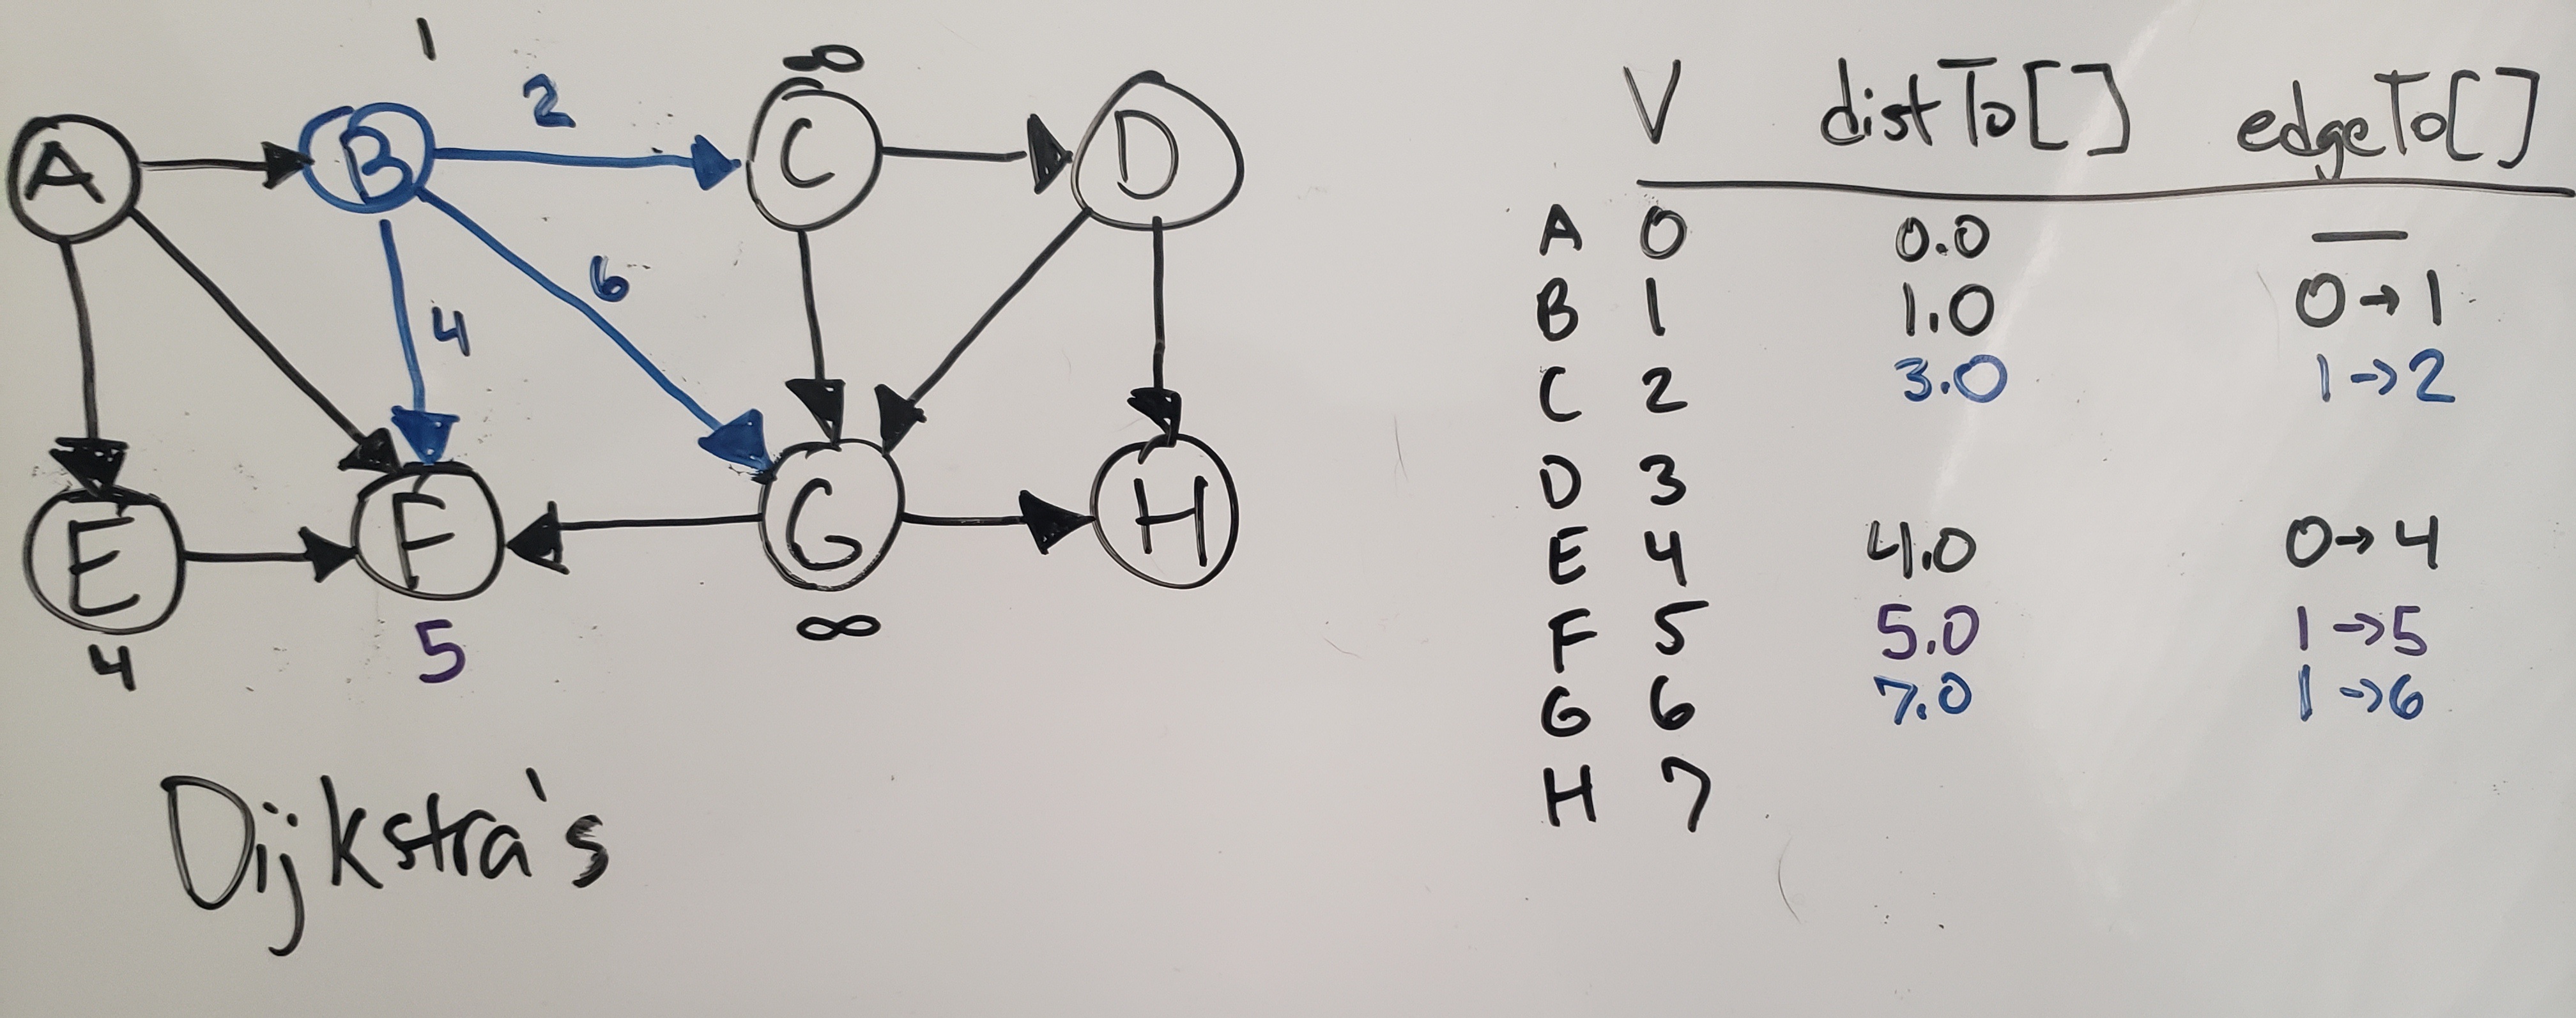 1
∞
2
A B C D
6
4
E F G H
4 5 ∞
Dijkstra's
V distTo[] edgeTo[]
A 0 0.0 —
B 1 1.0 0→1
C 2 3.0 1→2
D 3
E 4 4.0 0→4
F 5 5.0 1→5
G 6 7.0 1→6
H 7